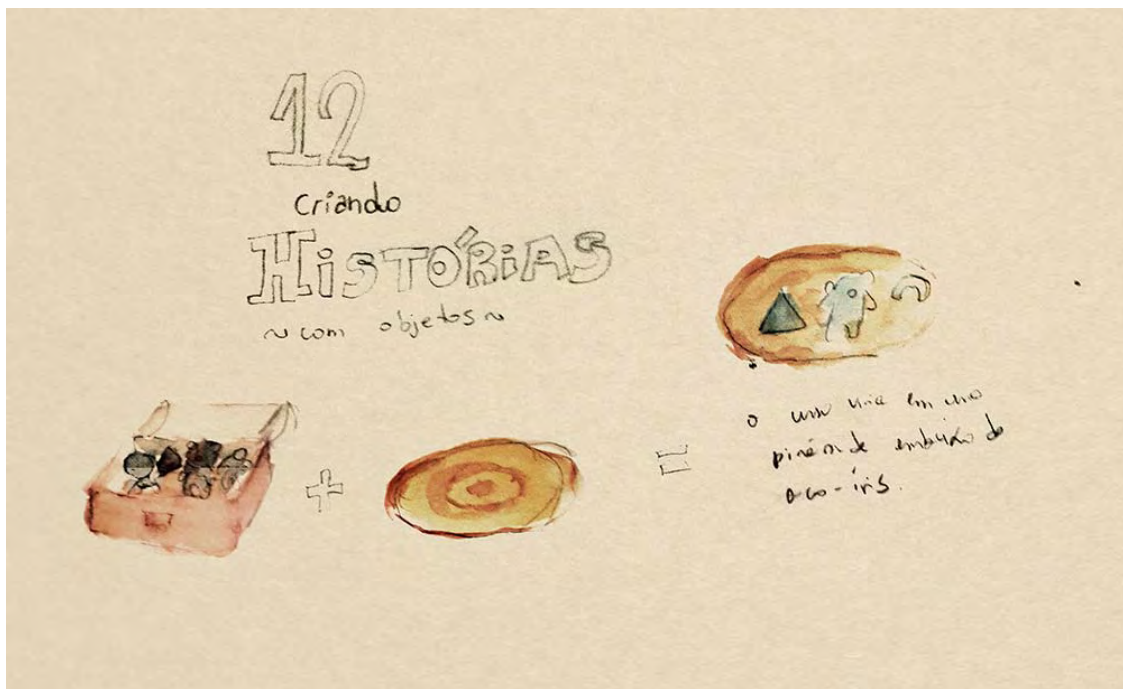 12
criando
HISTÓRIAS
~ com objetos ~
+
=
o urso vivia em uma
pirâmide embaixo do
arco-íris.